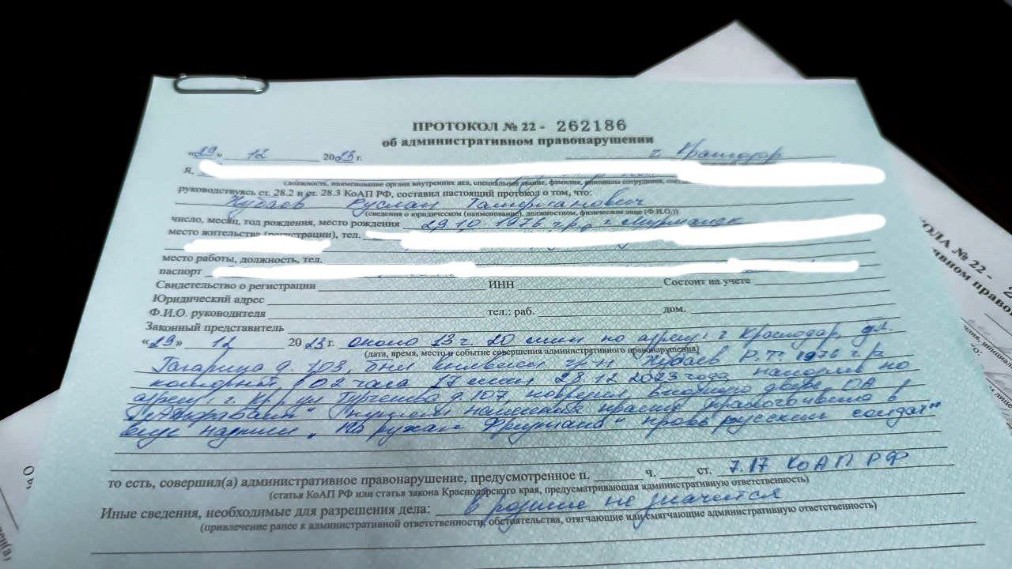 ПРОТОКОЛ № 22 - 262186
об административном правонарушении
«29» 12 2023 г. г. Краснодар
Я,
(должность, наименование органа внутренних дел, специальное звание, фамилия, инициалы сотрудника,
руководствуясь ст. 28.2 и ст. 28.3 КоАП РФ, составил настоящий протокол о том, что:
Руслан
(сведения о юридическом (наименование), должностном, физическом лице (Ф.И.О.))
число, месяц, год рождения, место рождения 29.10.1976 г.р. г. Мурманск
место жительства (регистрации), тел.
место работы, должность, тел.
паспорт
Свидетельство о регистрации ИНН Состоит на учете
Юридический адрес
Ф.И.О. руководителя тел.: раб. дом.
Законный представитель
«29» 12 2023 г. около 13 ч. 20 мин по адресу: г. Краснодар, ул.
(дата, время, место и событие совершения административного правонарушения)
Гагарина д. 103, был выявлен Р.Т. 1976 г.р
который в 02 часа мин 28.12.2023 года по
адресу, г. Кр ул д. 107, входную дверь ОА
путем нанесения краски
виде надписи „На руках Фридмана" кровь русских солдат"
то есть, совершил(а) административное правонарушение, предусмотренное п. ч. ст. 7.17 КоАП РФ
(статья КоАП РФ или статья закона Краснодарского края, предусматривающая административную ответственность)
Иные сведения, необходимые для разрешения дела: в розыске не значится
(привлечение ранее к административной ответственности, обстоятельства, отягчающие или смягчающие административную ответственность)
ОЛА № 22 -
ном правонар